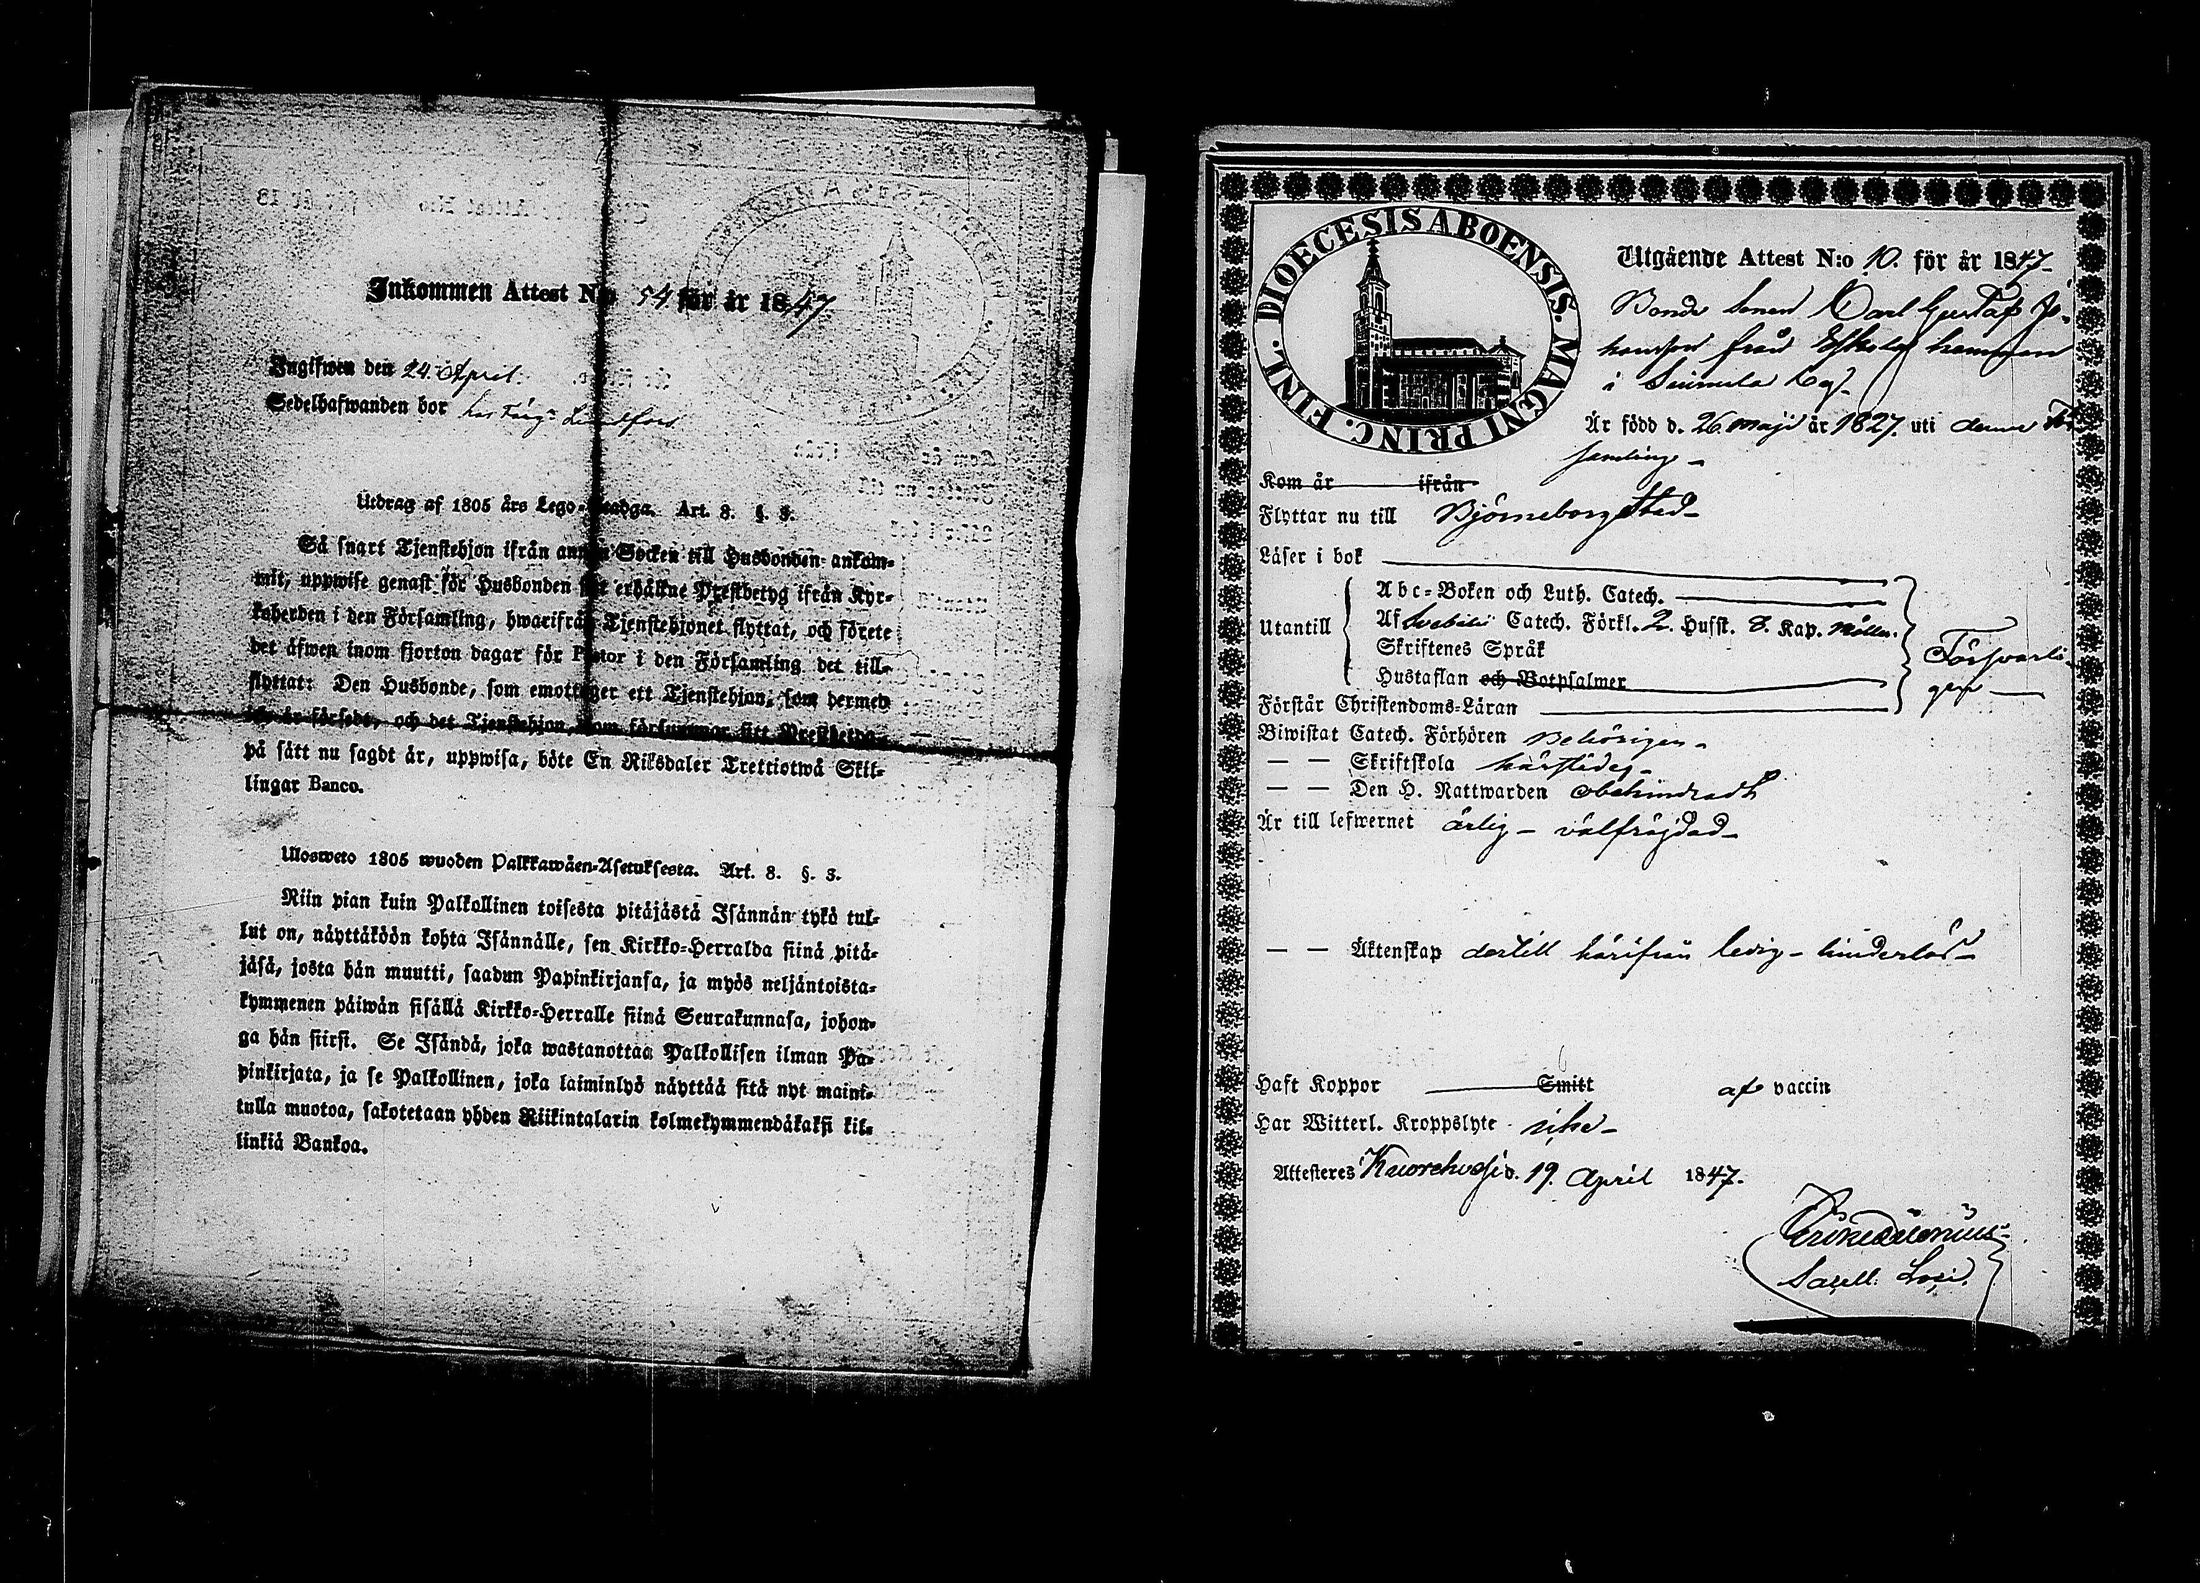 Inkommen Attest N:o 54 för år 1847
Ingifwen den 24 April.
Sedelhafwanden bor hos Färg:
Utdrag af 1805 års Lego-Stadga. Art. 8. §. 3.
Så snart Tjenstehjon ifrån annan Socken till Husbonden ankom-
mit, uppwise genast för Husbonden sitt erhållne Prestbetyg ifrån Kyr-
koherden i den Församling, hwarifrån Tjenstehjonet flyttat, och förete
det äfwen inom fjorton dagar för Pastor i den Församling det till-
flyttat: Den Husbonde, som emottager ett Tjenstehjon, som dermed
ej är försedt, och det Tjenstehjon, som försummar sitt Prestbetyg
på sätt nu sagdt är, uppwisa, böte En Riksdaler Trettiotwå Skil-
lingar Banco.
Ulosweto 1805 wuoden Palkkawäen-Asetuksesta. Art. 8. §. 3.
Niin pian kuin Palkollinen toisesta pitäjästä Isännän tykö tul-
lut on, näyttäköön kohta Isännälle, sen Kirkko-Herralda siinä pitä-
jäsä, josta hän muutti, saadun Papinkirjansa, ja myös neljäntoista-
kymmenen päiwän sisällä Kirkko-Herralle siinä Seurakunnasa, johon-
ga hän siirsi. Se Isändä, joka wastanottaa Palkollisen ilman Pa-
pinkirjata, ja se Palkollinen, joka laiminlyö näyttää sitä nyt maini-
tulla muotoa, sakotetaan yhden Riikintalarin kolmekymmendäkaksi kil-
linkiä Bankoa.
DIOECESIS ABOENSIS. MAGNI PRINC. FINL.
Utgående Attest N:o 10. för år 1847
Bonde Sonen Carl Gustaf Jo-
hansson från
i
Är född d. 26 maji år 1827. uti denna För
samling
Kom år ifrån
Flyttar nu till Björneborgs Stad
Läser i bok
Utantill
Abc-Boken och Luth. Catech.
Af Svebilii Catech. Förkl. 2. Husst. 8. Kap. nöllen.
Skriftenes Språk
Hustaflan och Botpsalmer
Försvarli
gen
Förstår Christendoms-Läran
Biwistat Catech. Förhören Behörigen
— — Skriftskola härstädes
— — Den H. Nattwarden obehindradt
Är till lefwernet ärlig - välfräjdad
— — Äktenskap dertill härifrån ledig - hinderlös
Haft Koppor Smitt af vaccin
Har Witterl. Kroppslyte icke
Attesteres d. 19. April 1847.
Sacell.